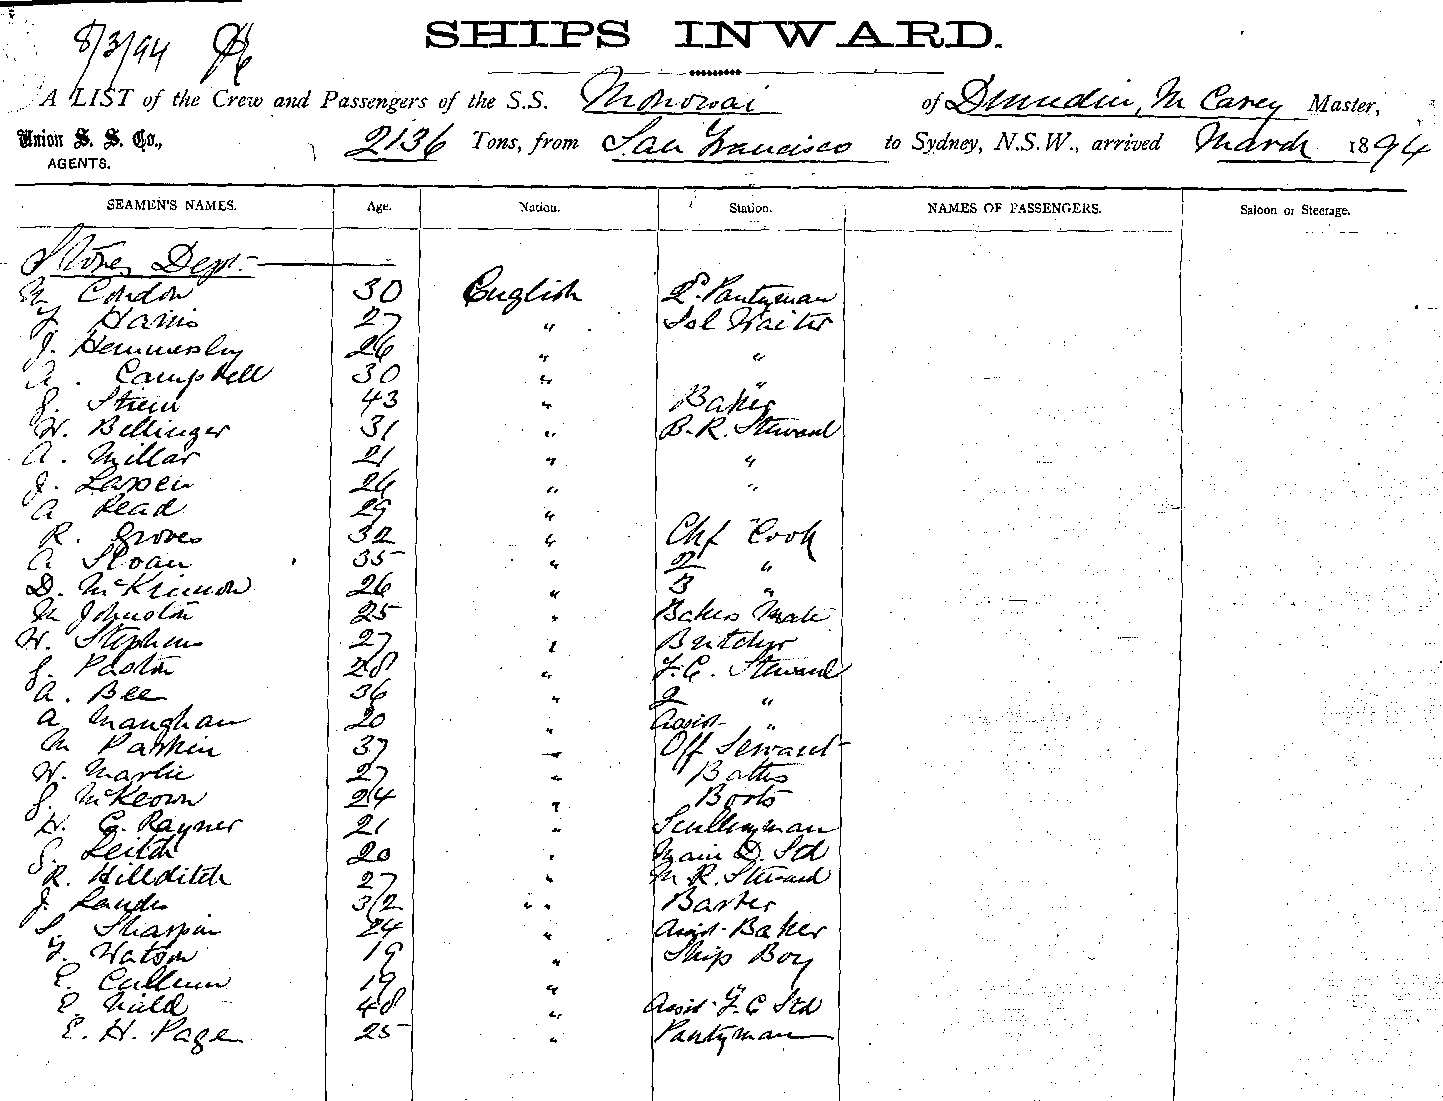 8/3/94
SHIPS INWARD.
A LIST of the Crew and Passengers of the S.S. Monowai of Dunedin, M Carey Master,
Union S. S. Co., AGENTS. 2136 Tons, from San Francisco to Sydney, N.S.W., arrived March 1894
SEAMEN'S NAMES. Age. Nation. Station. NAMES OF PASSENGERS. Saloon or Steerage.
Stores Dept.
M Condon 30 English P. Pantyman
F Harris 27 " Sal Waiter
J. Hennersley 26 " "
A. Campbell 30 " "
J. Stein 43 " Baker
W. Bellinger 31 " B. R. Steward
A. Millar 21 " "
J. Larsen 26 " "
A Read 29 "
R. Groves 32 " Chf Cook
A Sloan 35 " 2 "
D. McKinnon 26 " 3 "
M Johnston 25 " Bakers Mate
W. Stephens 27 " Butcher
G. Paston 28 " F.C. Steward
A. Bee 36 " 2 "
A Maughan 20 " Assist "
M Parkin 37 " Off Servant
W. Martin 27 " Baths
J. McKeown 24 " Boots
H. G. Rayner 21 " Scullyman
G. Leitch 20 " Main D. Std
R. Hillditch 27 " M. R. Steward
J. Landis 32 " " Barber
S. Sharpin 24 " Assist Baker
F. Watson 19 " Ship Boy
E. Cullum 19 " "
E. Nield 48 " Assist F. C Std
E. H. Page 25 " Pantyman